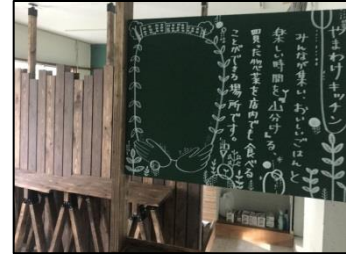 やまわけキッチン
みんなが集い、おいしいごはんと
楽しい時間を"山分け"する
買った惣菜を店内でも食べる
ことができる場所です。